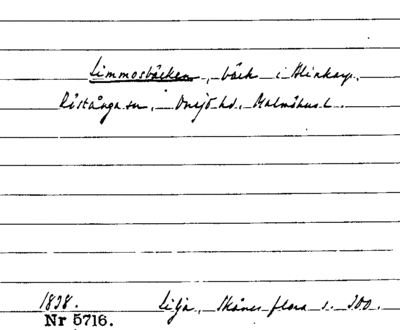 Limmosbäcken, bäck i Klinkarp,
Röstånga sn, Onsjö hd, Malmöhus l.
1838. Lilja, Skånes flora s. 300.
Nr 5716.